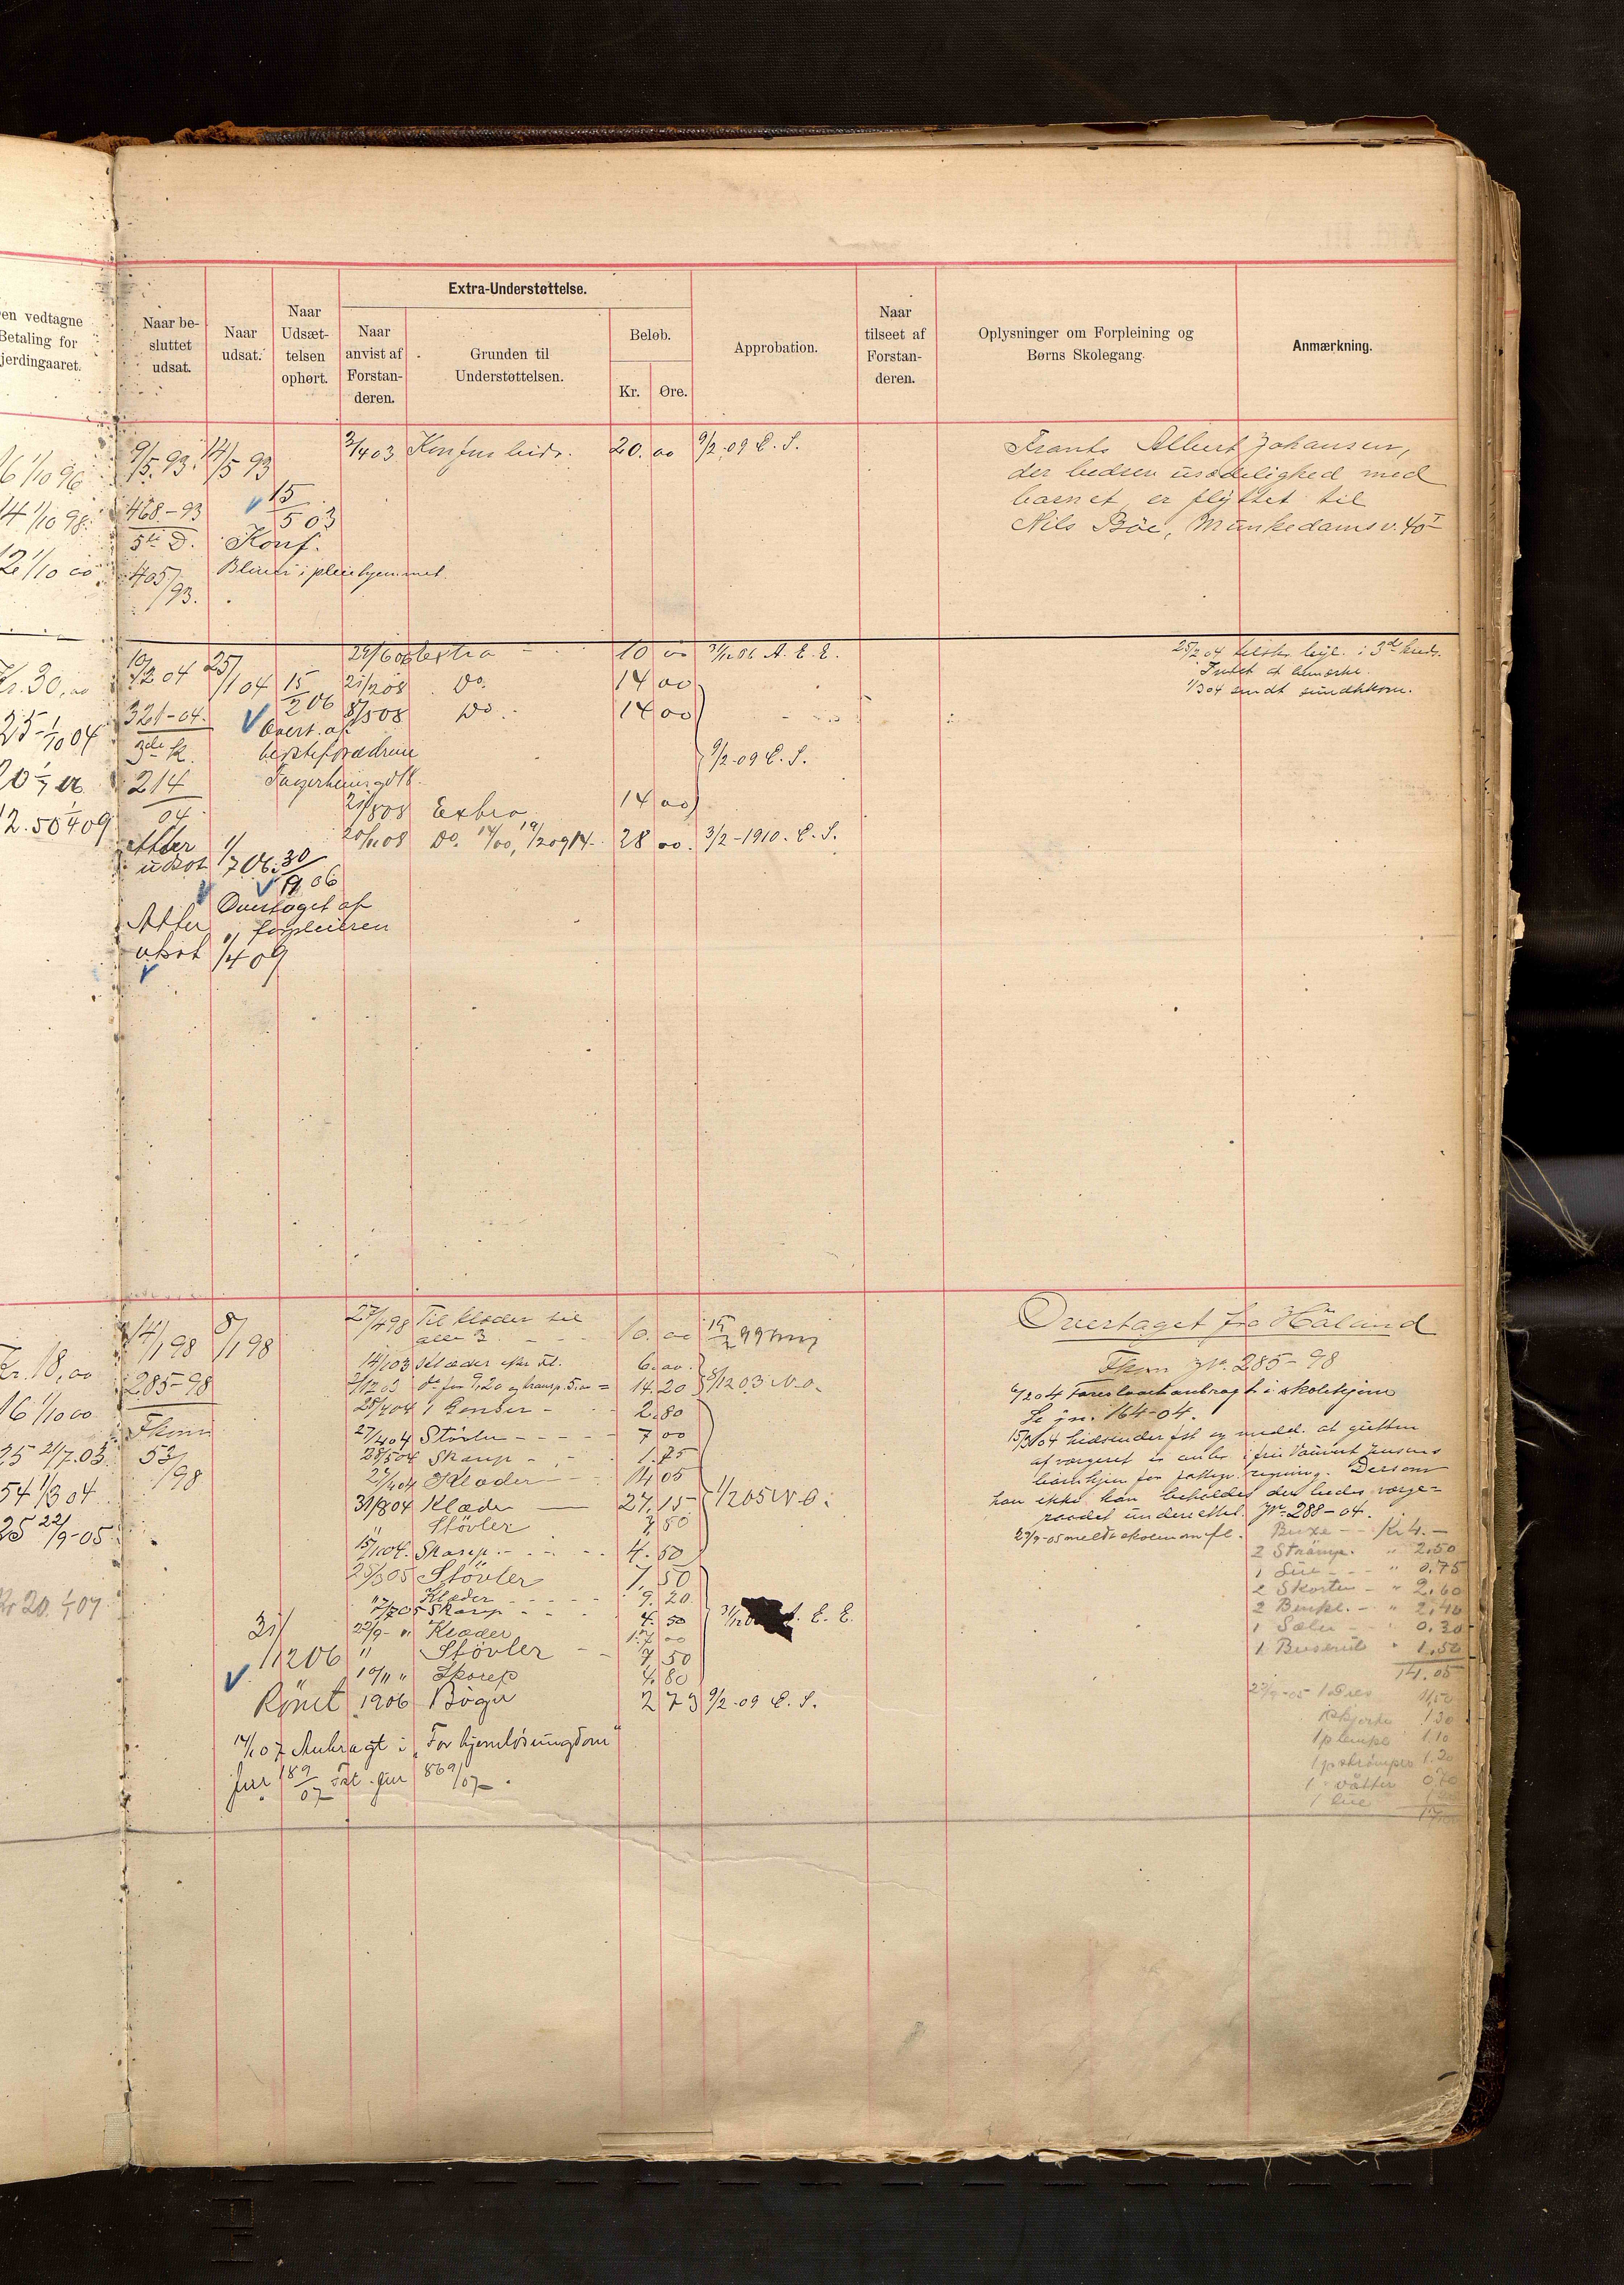 en vedtagne
Betaling for
jerdingaaret.
Naar be-
sluttet
udsat.
Naar
udsat.
Naar
Udsæt-
telsen
ophørt.
Extra-Understøttelse.
Naar
anvist af
Forstan-
deren.
Grunden til
Understøttelsen.
Beløb.
Kr. Øre.
Approbation.
Naar
tilseet af
Forstan-
deren.
Oplysninger om Forpleining og
Børns Skolegang.
Anmærkning.
16 1/10 96
14 1/10 98.
12 1/10 00
9/5.93. 14/5 93
468-93
5te D.
405/93.
15/5 03
Konf.
Bliver i pleiehjemmet.
3/4 03 20.00 9/2-09 E. S.
Frants Albert Johansen,
der bedrev usædelighed med
barnet er flyttet til
Nils Böe, Munkedamsv. 40 I
Kr. 30,00
25 1/10 04
12.50 1/4 09
10/2 04 25/1 04
321-04.
3die K.
214/04
15/2 06
Overt. af
besteforædrene
Fagerheimgd 18.
29/6 06 Extra 10 00 31/12 06 A. E. E.
21/2 08 Do. 14 00
8/5 08 Do. 14 00
9/2-09 E. S.
21/8 08 Extra 14 00
20/11 08 Do. 28 00. 3/2-1910. E. S.
Atter
udsat 1/7 06. 30/9 06
Overtaget af
forpleieren
Atter
udsat 1/4 09
25/2 04
Intet at bemærke.
1/3 04 sendt sundhkom.
Kr. 18,00
16 1/10 00
25 21/7.03.
54 1/3 04
25 22/9-05
Kr 20. 1/1 07
14/1 98 8/1 98
285-98
Fkom
53/98
27/4 98 Til klæder til
alle 3 10.00
14/1 03 Klæder 6.00.
14.20 3/12 03 N-O.
25/4 04 1 Genser 2.80
27/4 04 Støvler 7 00
28/5 04 Skarep 1.75
Klæder 14 05
31/8 04 Klæder 27.15 1/2 05 N-O.
" Støvler 7,50
15/11 04. Skarep. 4.50
Støvler 7,50
" Klæder 9.20
Skarep 4.50
22/9- " Klæder 17 00
" Støvler 7 50
10/11 " Skorep 4.80
1906 Bøger 2 73 9/2-09 E. S.
31/12 06
Römt
14/1 07 Anbragt i "For hjemløs ungdom"
jnr 189/07 Fat. jnr 869/07.
Overtaget fra Håland
Fkom Jr. 285-98
6/2 04 Foreslaaet anbragt i skolehjem
Se jn. 164-04.
af vergeret
barnhjem for fattigv. regning. Dersom
han ikke kan beholdes der bedes værge-
raadet underrettet. Jr. 288-04.
22/9-05 meldt skolen om fl.
Buxe Kr 4.-
2 Strömp. " 2,50
1 Lue " 0.75
2 Skorter " 2,60
2 Benkl. " 2,40
1 Sæler " 0,30
1 Buserul " 1,50
14.05
22/9-05 1 Dres 11,50
1 Skjorte 1 30
1 p lempe 1.10
1 p strömper 1.20
1 " våtter 0,70
1 lue